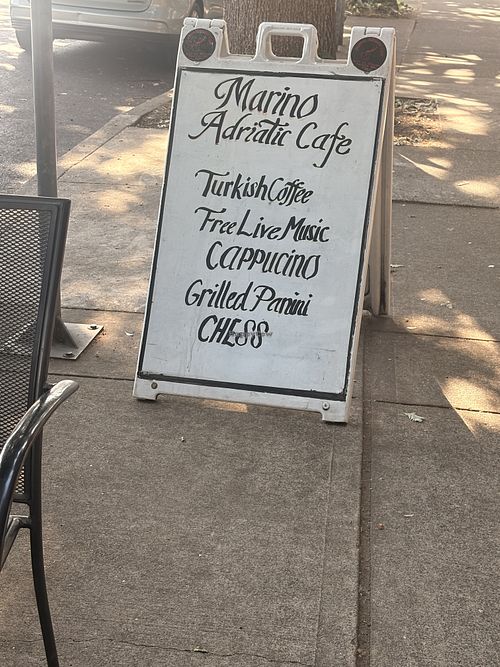 Marino
Adriatic Cafe
Turkish Coffee
Free Live Music
CAPPUCINO
Grilled Panini
CHESS